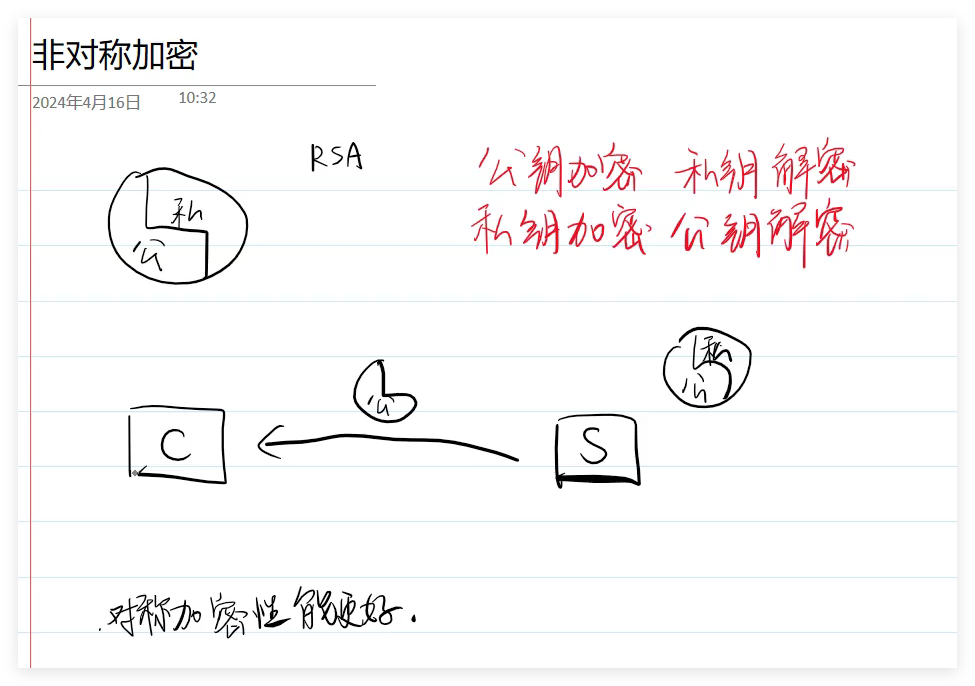 非对称加密
2024年4月16日 10:32
RSA
公钥加密 私钥解密
私钥加密 公钥解密
私
公
私
公
公
C
S
对称加密性能更好.